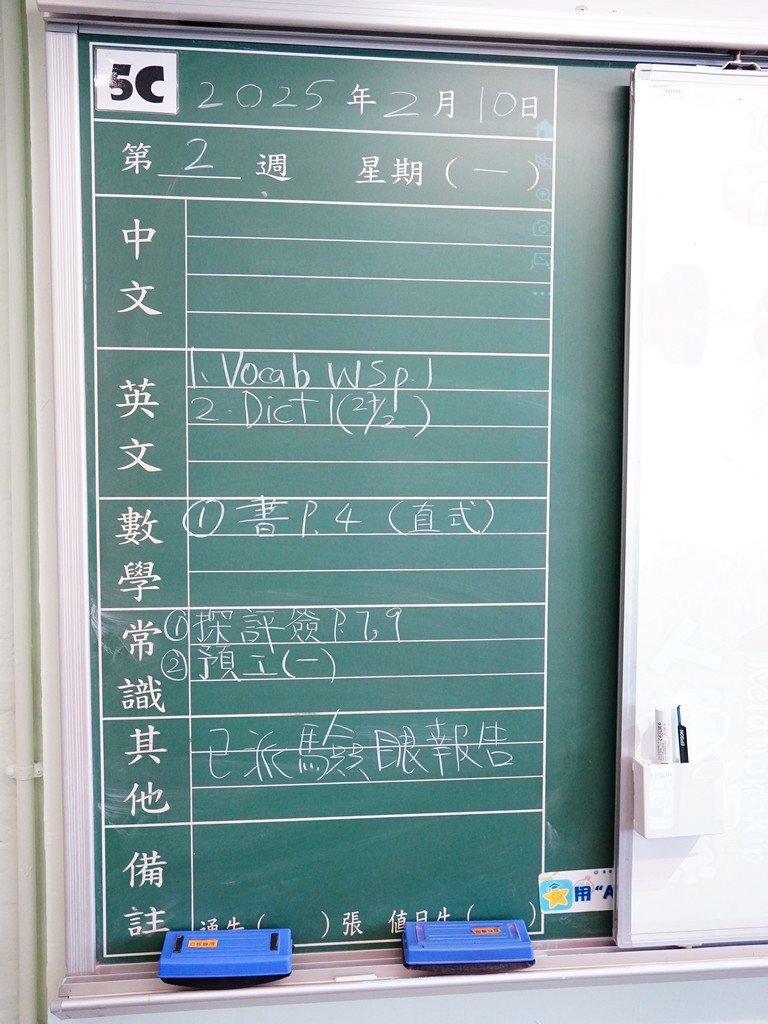 5C 2025年2月10日
第 2 週 星期(一)
中文
英文
1. Vocab WS p.1
2. Dict 1 (27/2)
數學
① 書 P.4 (直式)
常識
① 探評簽 P.7,9
② 預工(一)
其他
已派驗眼報告
備註
通告( )張 值日生( )
用“A
EPSON